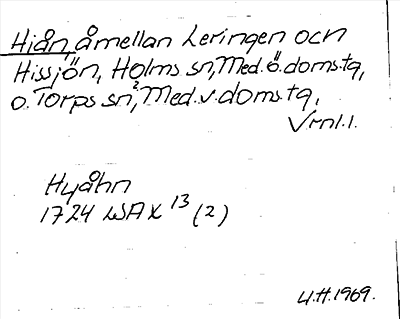 Hiån, å mellan Leringen och
Hissjön, Holms sn, Med. ö. doms.tg,
o. Torps sn², Med. v. doms.tg,
Vrnl.l.
Hyåhn
1724 LSA X 13 (2)
U.H. 1969.